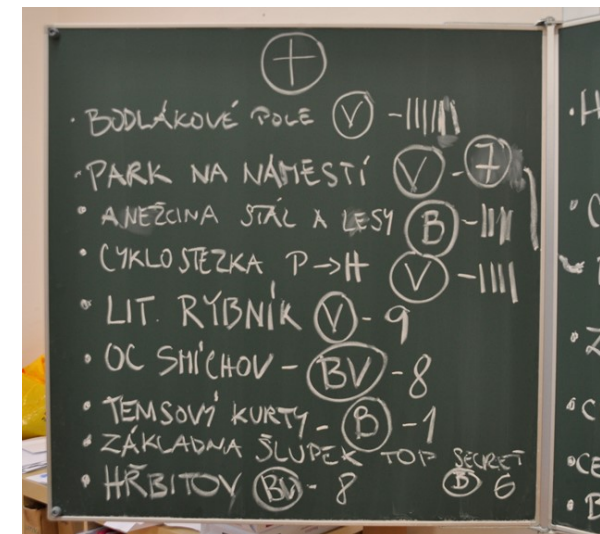 +
• BODLÁKOVÉ POLE V -
• PARK NA NÁMESTÍ V - 7
• ANEŽCINA STÁL A LESY B - ||||
• CYKLOSTEZKA P→H V - ||||
• LIT. RYBNÍK V - 9
• OC SMÍCHOV - BV - 8
• TEMSOVÝ KURTY - B - 1
• ZÁKLADNA ŠLUPEK TOP SECRET B 6
• HŘBITOV BV - 8